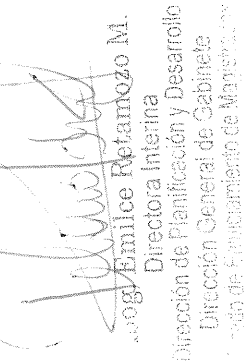 Abog. Emilce Retamozo M.
Directora Interina
Dirección de Planificación y Desarrollo
Dirección General de Gabinete